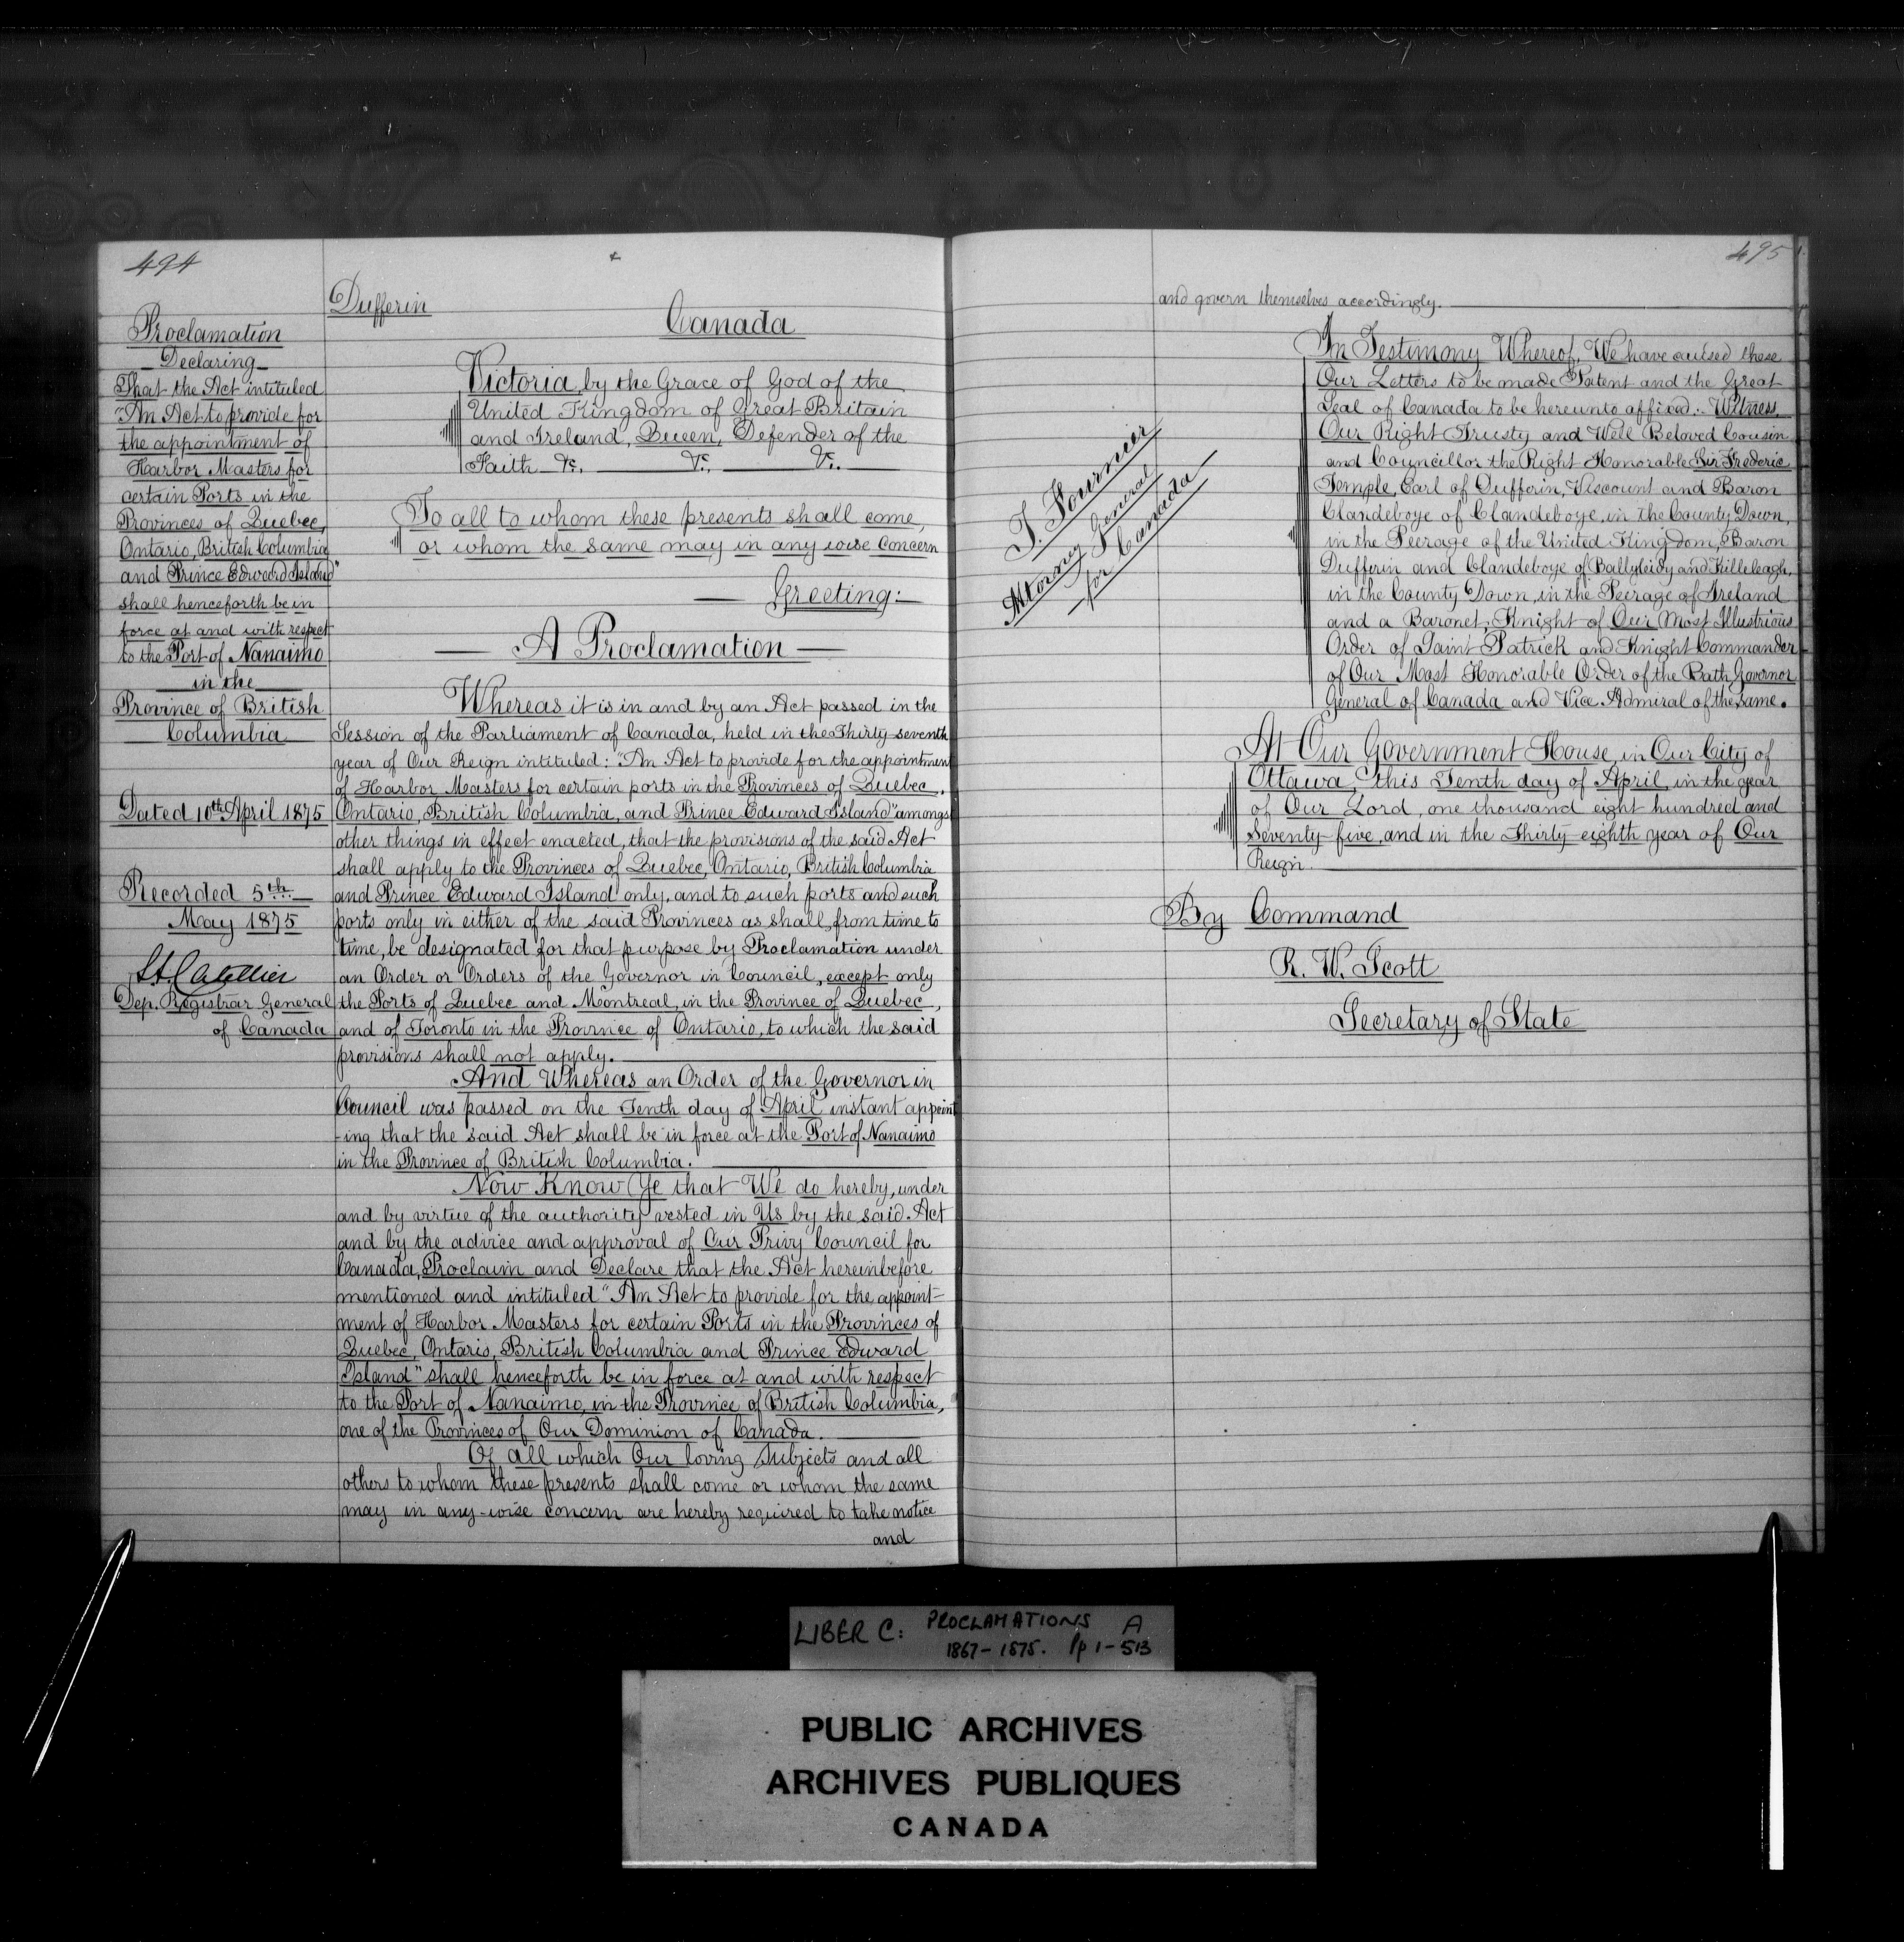 494
Proclamation
Declaring
That the Act intituled
"An Act to provide for
the appointment of
Harbor Masters for
certain Ports in the
Provinces of Quebec,
Ontario, British Columbia
and Prince Edward Island"
shall henceforth be in
force at and with respect
to the Port of Nanaimo
in the
Province of British
Columbia
Dated 10th April 1875
Recorded 5th
May 1875
Dep. Registrar General
of Canada
Dufferin
Canada
Victoria, by the Grace of God of the
United Kingdom of Great Britain
and Ireland, Queen, Defender of the
Faith &c. &c. &c.
To all to whom these presents shall come,
or whom the same may in any wise concern
Greeting:
A Proclamation
Whereas it is in and by an Act passed in the
Session of the Parliament of Canada, held in the Thirty seventh
year of Our Reign intituled: "An Act to provide for the appointment
of Harbor Masters for certain ports in the Provinces of Quebec,
Ontario, British Columbia, and Prince Edward Island" amongst
other things in effect enacted, that the provisions of the said Act
shall apply to the Provinces of Quebec, Ontario, British Columbia
and Prince Edward Island only, and to such ports and such
ports only in either of the said Provinces as shall, from time to
time, be designated for that purpose by Proclamation under
an Order or Orders of the Governor in Council, except only
the Ports of Quebec and Montreal, in the Province of Quebec,
and of Toronto in the Province of Ontario, to which the said
provisions shall not apply.
And Whereas an Order of the Governor in
Council was passed on the Tenth day of April instant appoint
-ing that the said Act shall be in force at the Port of Nanaimo
in the Province of British Columbia.
Now Know Ye that We do hereby, under
and by virtue of the authority vested in Us by the said Act
and by the advice and approval of Our Privy Council for
Canada, Proclaim and Declare that the Act hereinbefore
mentioned and intituled "An Act to provide for the appoint-
ment of Harbor Masters for certain Ports in the Provinces of
Quebec, Ontario, British Columbia and Prince Edward
Island" shall henceforth be in force at and with respect
to the Port of Nanaimo, in the Province of British Columbia,
one of the Provinces of Our Dominion of Canada.
Of all which Our loving Subjects and all
others to whom these presents shall come or whom the same
may in any-wise concern are hereby required to take notice
and
495
and govern themselves accordingly.
T. Fournier
Attorney General
for Canada
In Testimony Whereof, We have caused these
Our Letters to be made Patent and the Great
Seal of Canada to be hereunto affixed:- Witness,
Our Right Trusty and Well Beloved Cousin
and Councillor the Right Honorable Sir Frederic
Temple, Earl of Dufferin, Viscount and Baron
Clandeboye of Clandeboye, in the County Down,
in the Peerage of the United Kingdom, Baron
Dufferin and Clandeboye of Ballyleidy and Killeleagh,
in the County Down, in the Peerage of Ireland
and a Baronet, Knight of Our Most Illustrious
Order of Saint Patrick and Knight Commander
of Our Most Honorable Order of the Bath, Governor
General of Canada and Vice Admiral of the same.
At Our Government House, in Our City of
Ottawa, this Tenth day of April, in the year
of Our Lord, one thousand eight hundred and
Seventy-five, and in the Thirty-eighth year of Our
Reign.
By Command
R. W. Scott
Secretary of State
LIBER C: PROCLAMATIONS A
1867-1875. Pp 1-513
PUBLIC ARCHIVES
ARCHIVES PUBLIQUES
CANADA